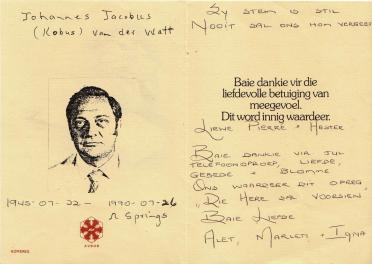 Johannes Jacobus
(Kobus) van der Watt
1945-07-22 - 1990-07-26
Springs
AVBOB
Sy stem is stil
Nooit sal ons hom vergeet
Baie dankie vir die
liefdevolle betuiging van
meegevoel.
Dit word innig waardeer.
Liewe Pierre + Hester
Baie dankie vir jul
telefoonoproep, liefde,
gebede + blomme
Ons waardeer dit opreg
"Die Here sal voorsien"
Baie liefde
Alet, Marleti + Igna